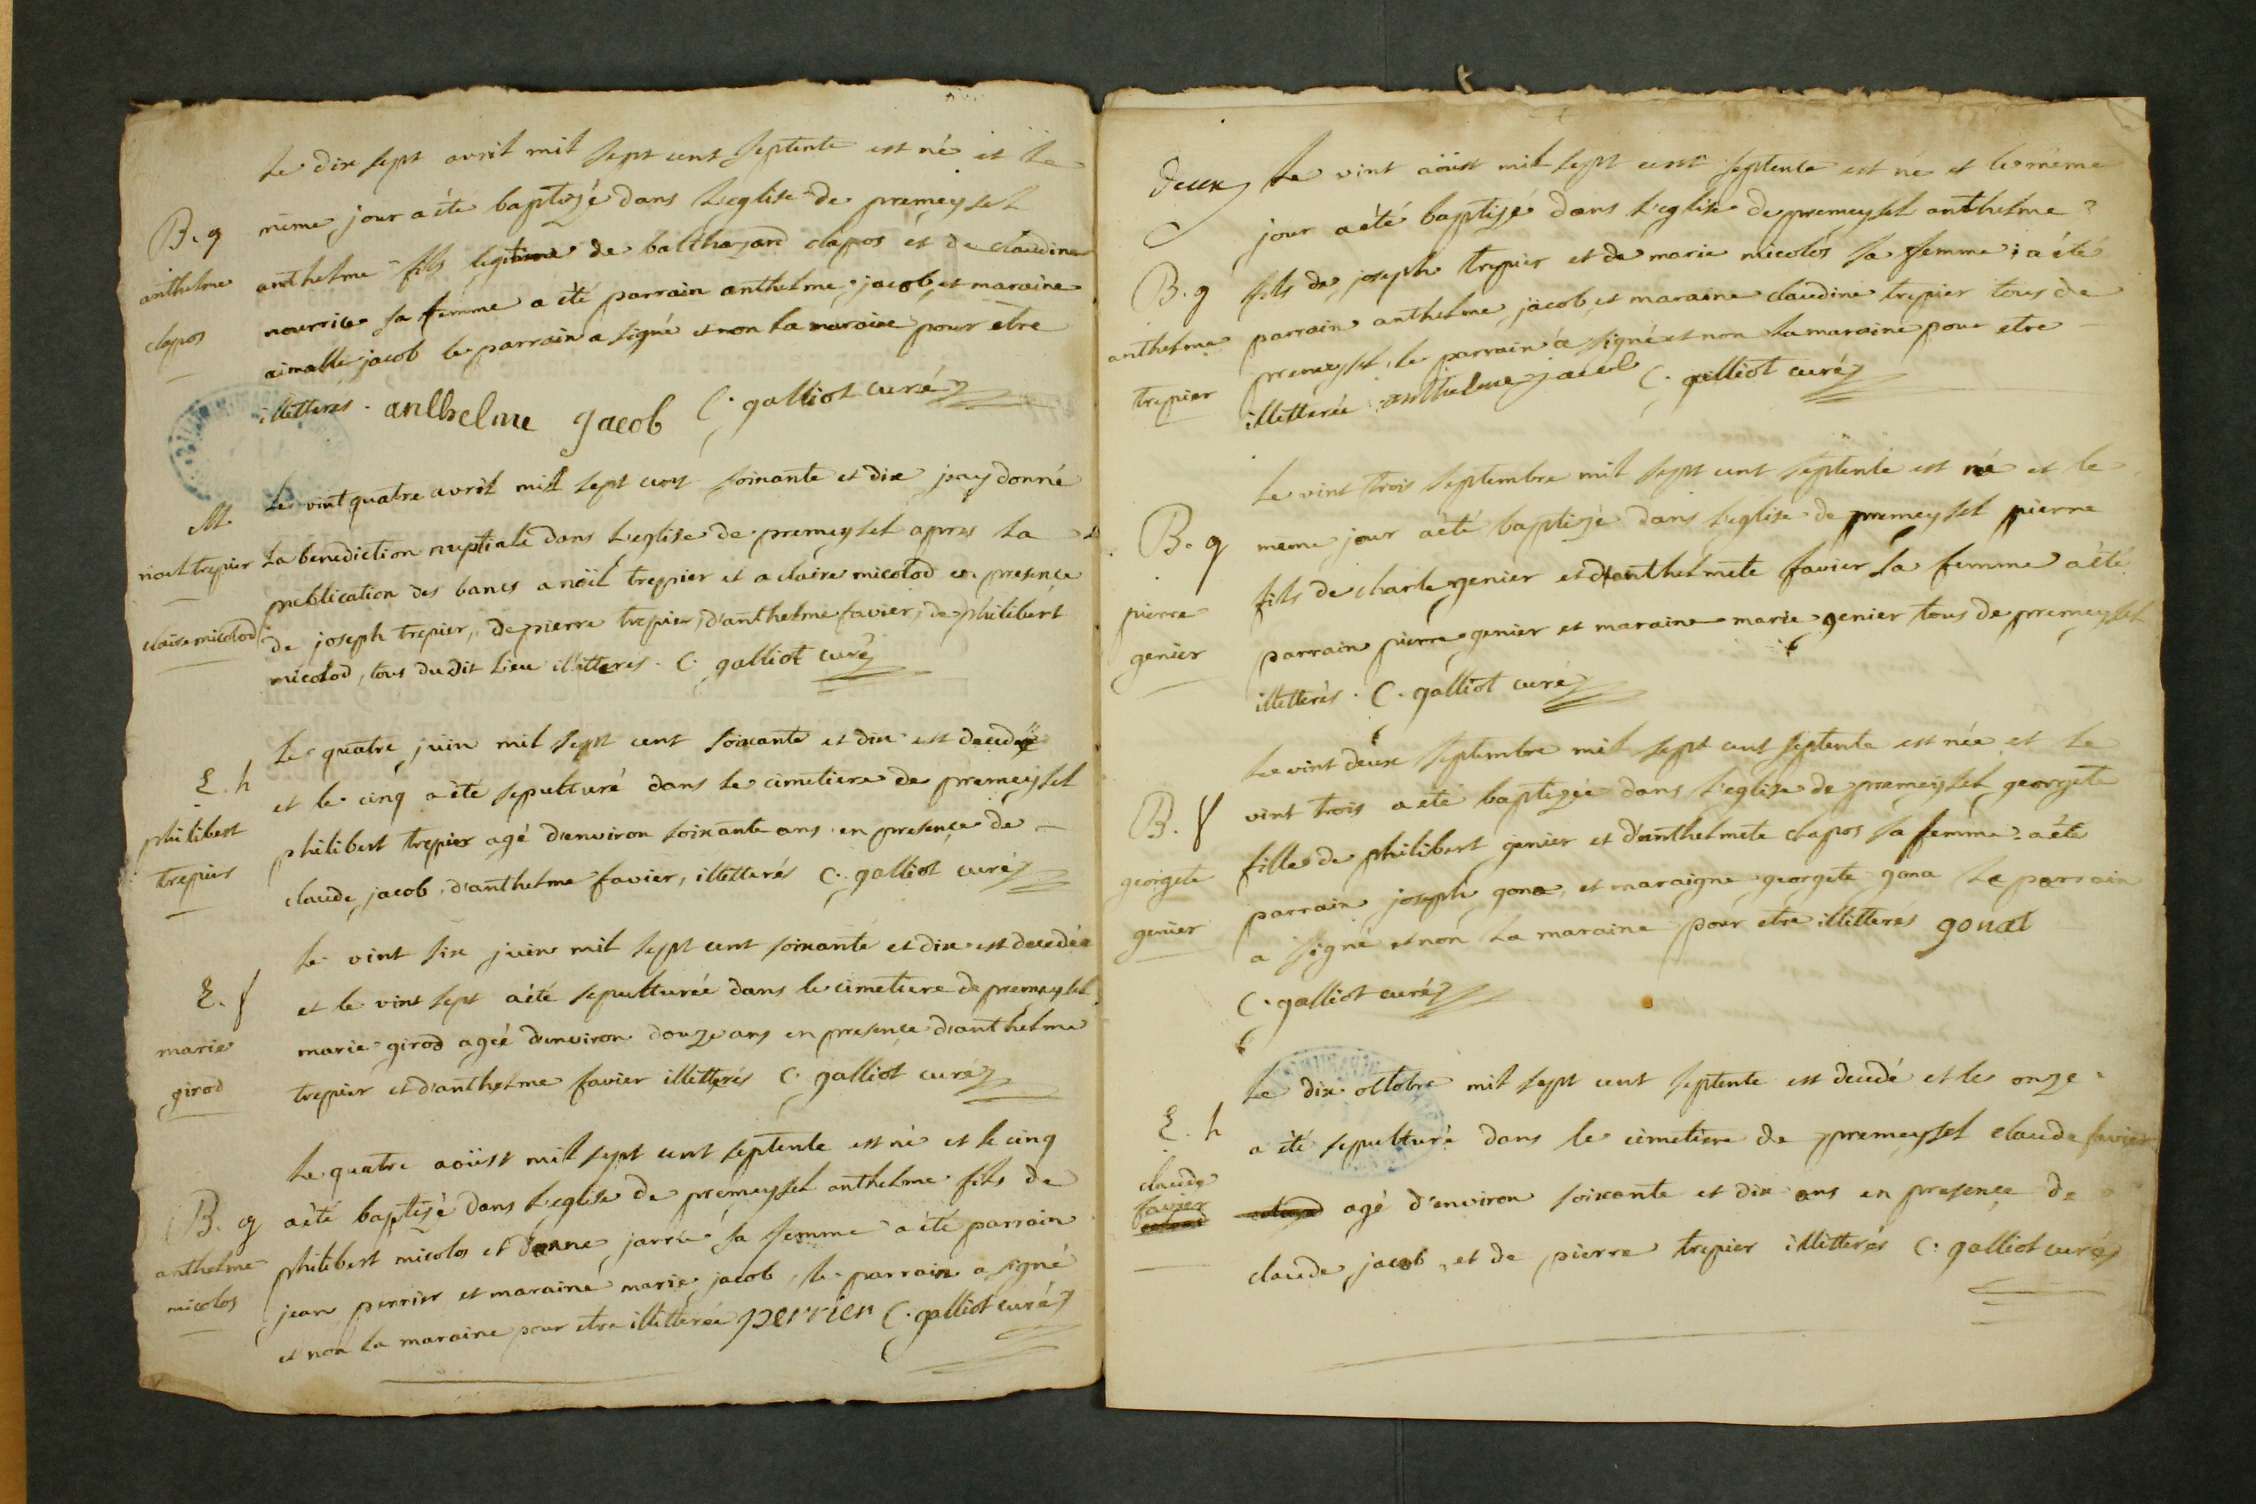 Le dix sept avril mil sept cent septente est né et le
B. g même jour a été baptizé dans L'eglise de premeysel
anthelme anthelme fils legitime de balthazard clapos et de claudine
clapos nourrice sa femme a été parrain anthelme jacob, et maraine
aimable jacob le parrain a signé et non la maraine pour etre
illitterés. anthelme jacob C. galliot curé
M. Le vint quatre avril mil sept cent soixante et dix j'ay donné
noel trepier La benediction nuptiale dans L'eglise de premeysel apres la
publication des bancs a nöel treppier et a claire micolod en presence
claire micolod de joseph trepier, de pierre trepier, d'anthelme favier, de philibert
micolod, tous du dit Lieu illitteres. C. galliot curé
Le quatre juin mil sept cent soixante et dix est decedé
E. h et le cinq a été sepulturé dans le cimetiere de premeysel
philibert philibert treppier agé d'environ soixante ans en presence de
trepier claude jacob, d'anthelme favier, illitterés C. galliot curé
Le vint six juin mil sept cent soixante et dix est decedée
E. f et le vint sept a été sepulturée dans le cimetiere de premeysel
marie marie girod ageé d'environ douze ans en presence d'anthelme
girod treppier et d'anthelme favier illitterés C. galliot curé
Le quatre aoüst mil sept cent septente est né et le cinq
B. g a été baptisé dans L'eglise de premeysel anthelme fils de
anthelme philibert micolos et d'anne jarrie sa femme a été parrain
micolos jean perrier et maraine marie jacob, le parrain a signé
et non la maraine pour etre illitterée perrier C. galliot curé
deux Le vint aöust mil sept cent septente est né et le même
jour a été baptisé dans L'eglise de premeysel anthelme
B. g fils de joseph trepier et de marie micolos sa femme; a été
anthelme parrain anthelme jacob, et maraine claudine trepier tous de
trepier premeysel, le parrain a signé et non la maraine pour etre
illitterée anthelme jacob C. galliot curé
Le vint trois septembre mil sept cent septente est né et le
B. g meme jour a été baptizé dans L'eglise de premeysel pierre
pierre fils de charle genier et d'anthelmete favier sa femme a été
genier parrain pierre genier et maraine marie genier tous de premeysel
illitterés. C. galliot curé
Le vint deux septembre mil sept cent septente est née et le
B. f vint trois a été baptizée dans L'eglise de premeysel georgete
georgete fille de philibert genier et d'anthelmete clapos sa femme a été
genier parrain joseph gona, et maraigne georgete gona Le parrain
a signé et non la maraine pour etre illitterés gonat
C. galliot curé
Le dix octobre mil sept cent septente est decedé et le onze
E. h a été sepulturé dans le cimetiere de premeysel claude favier
claude
favier agé d'environ soixante et dix ans en presence de
claude jacob, et de pierre trepier illitterés C. galliot curé